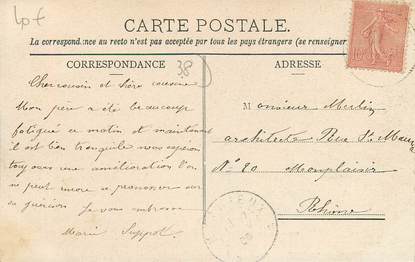 Lot
CARTE POSTALE.
La correspondance au recto n'est pas acceptée par tous les pays étrangers (se renseigner
CORRESPONDANCE
38
ADRESSE
Cher cousin et chère cousine
Mon père a été beaucoup
fatigué ce matin et maintenant
il est bien tranquile nous espérons
toujours une amélioration l'on
ne peut encore se prononcer sur
sa guérison Je vous embrasse
Marie
Monsieur Merlin
architecte Rue St
N° 20 Monplaisir
Rhône